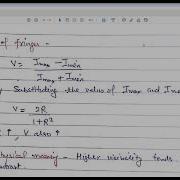 of fringes -
V = Imax - Imin
Imax + Imin
Substituting the value of Imax and Imin
V = 2R
1 + R²
↑, V also ↑
meaning - Higher visibility tends